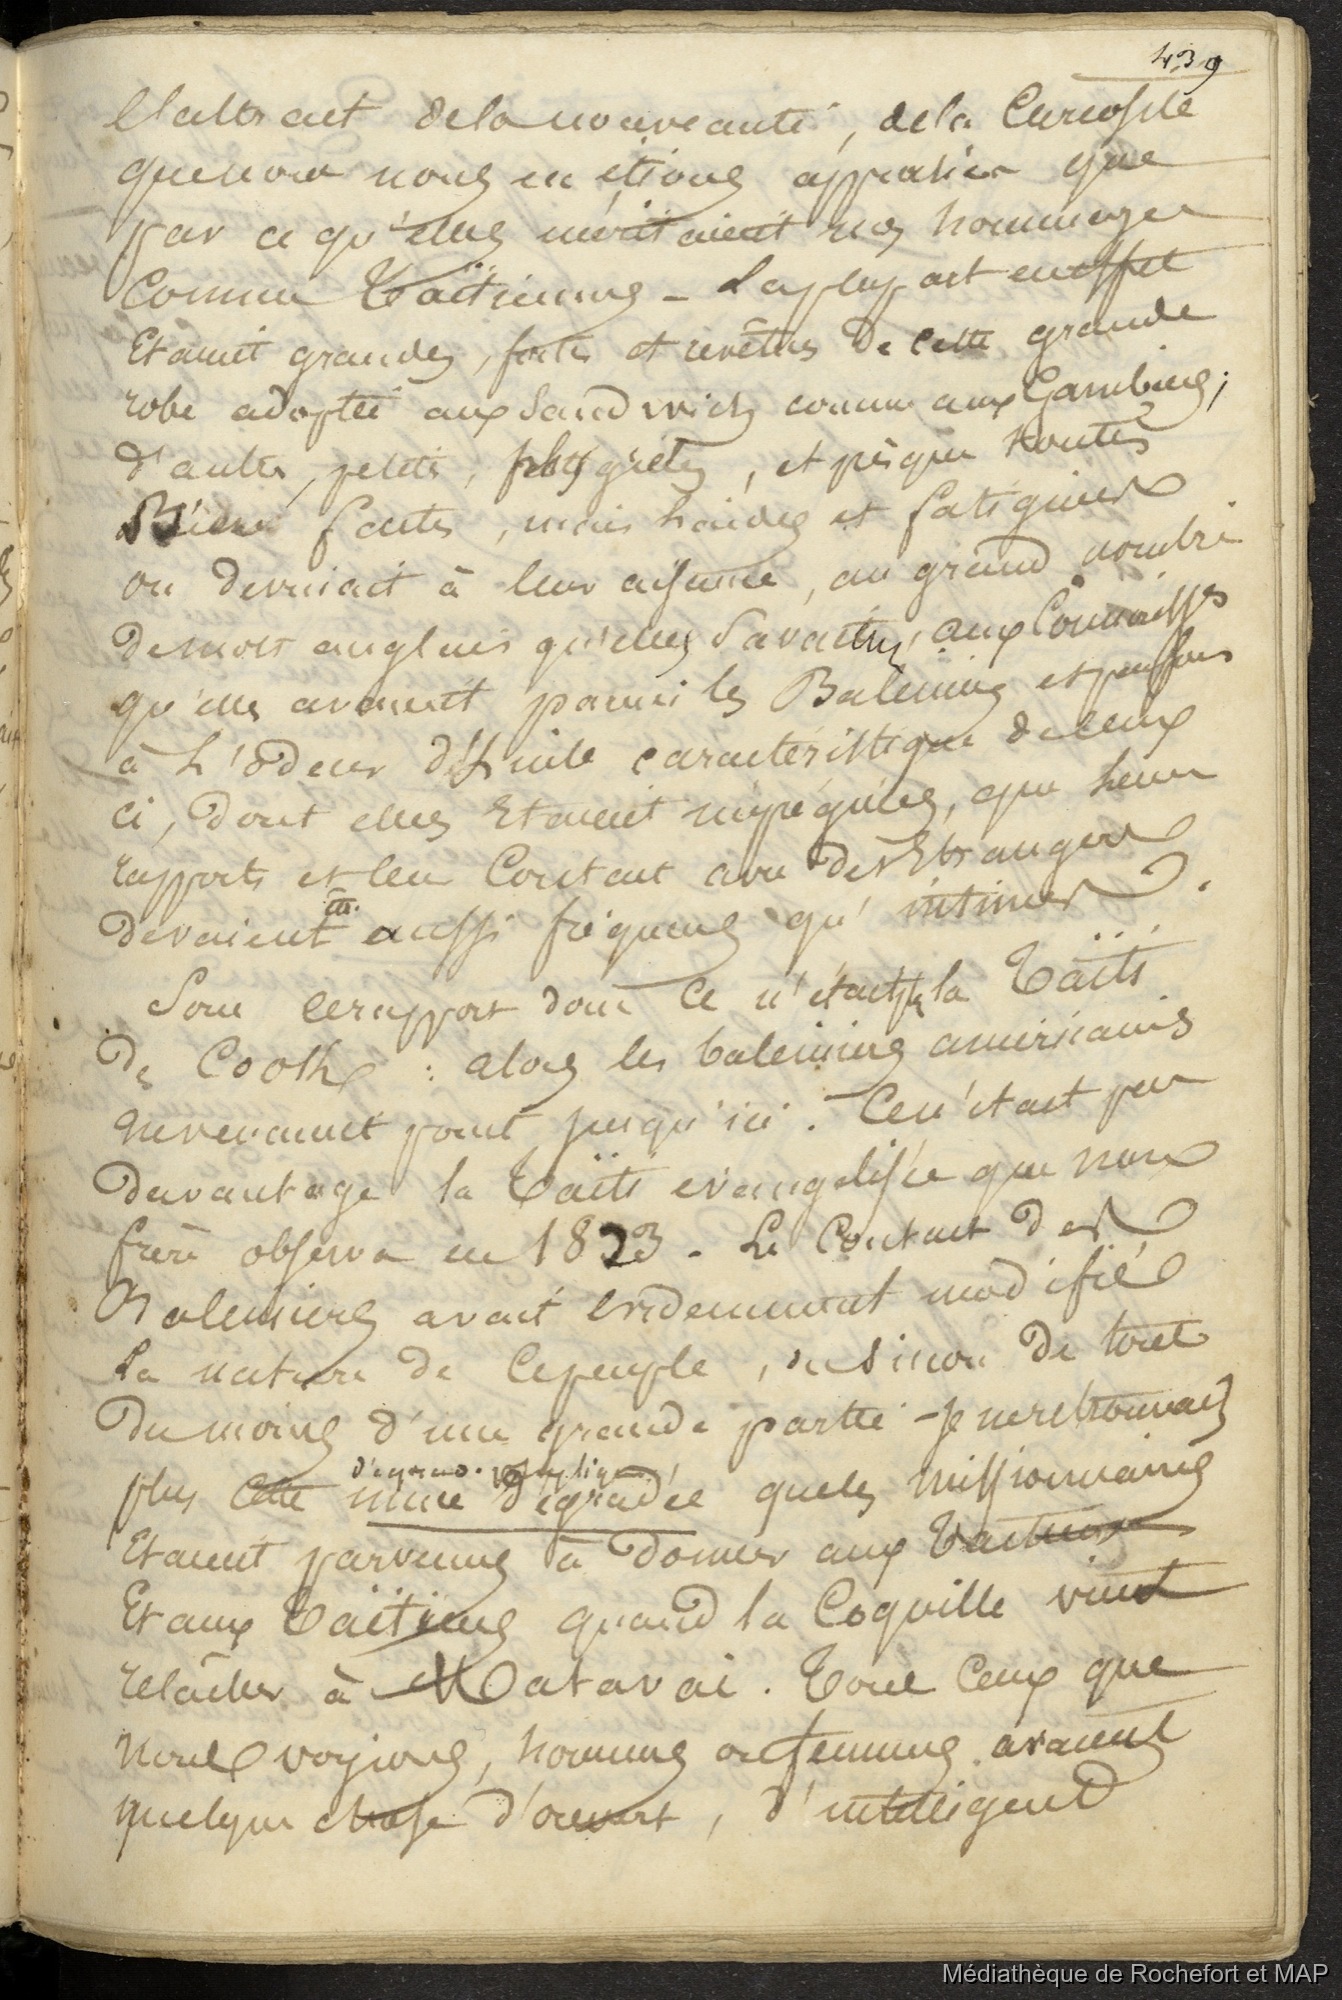 439
l'attrait de la nouveauté, de la Curiosité
que nous nous en étions approchés que
par ce qu'elles méritaient nos hommages
Comme Taïtiennes - La plupart en effet
Etaient grandes, fortes et revêtues de cette grande
robe adoptée aux Sandwich comme aux Gambiers;
d'autres, petites, grêles, et presque toutes
Bien faites, mais laides et fatiguées
on devinait à leur aisance, au grand nombre
de mots anglais qu'elles savaient, aux Connaisses
qu'elles avaient parmi les Baleiniers et
à l'odeur d'huile caractéristique de ceux
ci, dont elles Etaient imprégnées, que leurs
rapports et leur Contact avec des Etrangers
devaient aussi fréquens qu'intimes.
Sous ce rapport donc Ce n'était plus la Taïti
de Cook : alors les baleiniers américains
ne venaient point jusqu'ici. Ce n'était pas
davantage la Taïti évangelisée que mon
frère observa en 1823 - Le Contact des
Baleiniers avait evidemment modifié
La nature de Ce peuple, sinon de tout
Du moins d'une grande partie - Je ne retrouvais
plus cette mine dégradée que les missionnaires
Etaient parvenus à donner aux
Et aux Taïtiens quand la Coquille vint
relâcher à Matavai. Tous Ceux que
Nous voyions, hommes ou femmes avaient
quelque chose d'ouvert, d'intelligent
Médiathèque de Rochefort et MAP